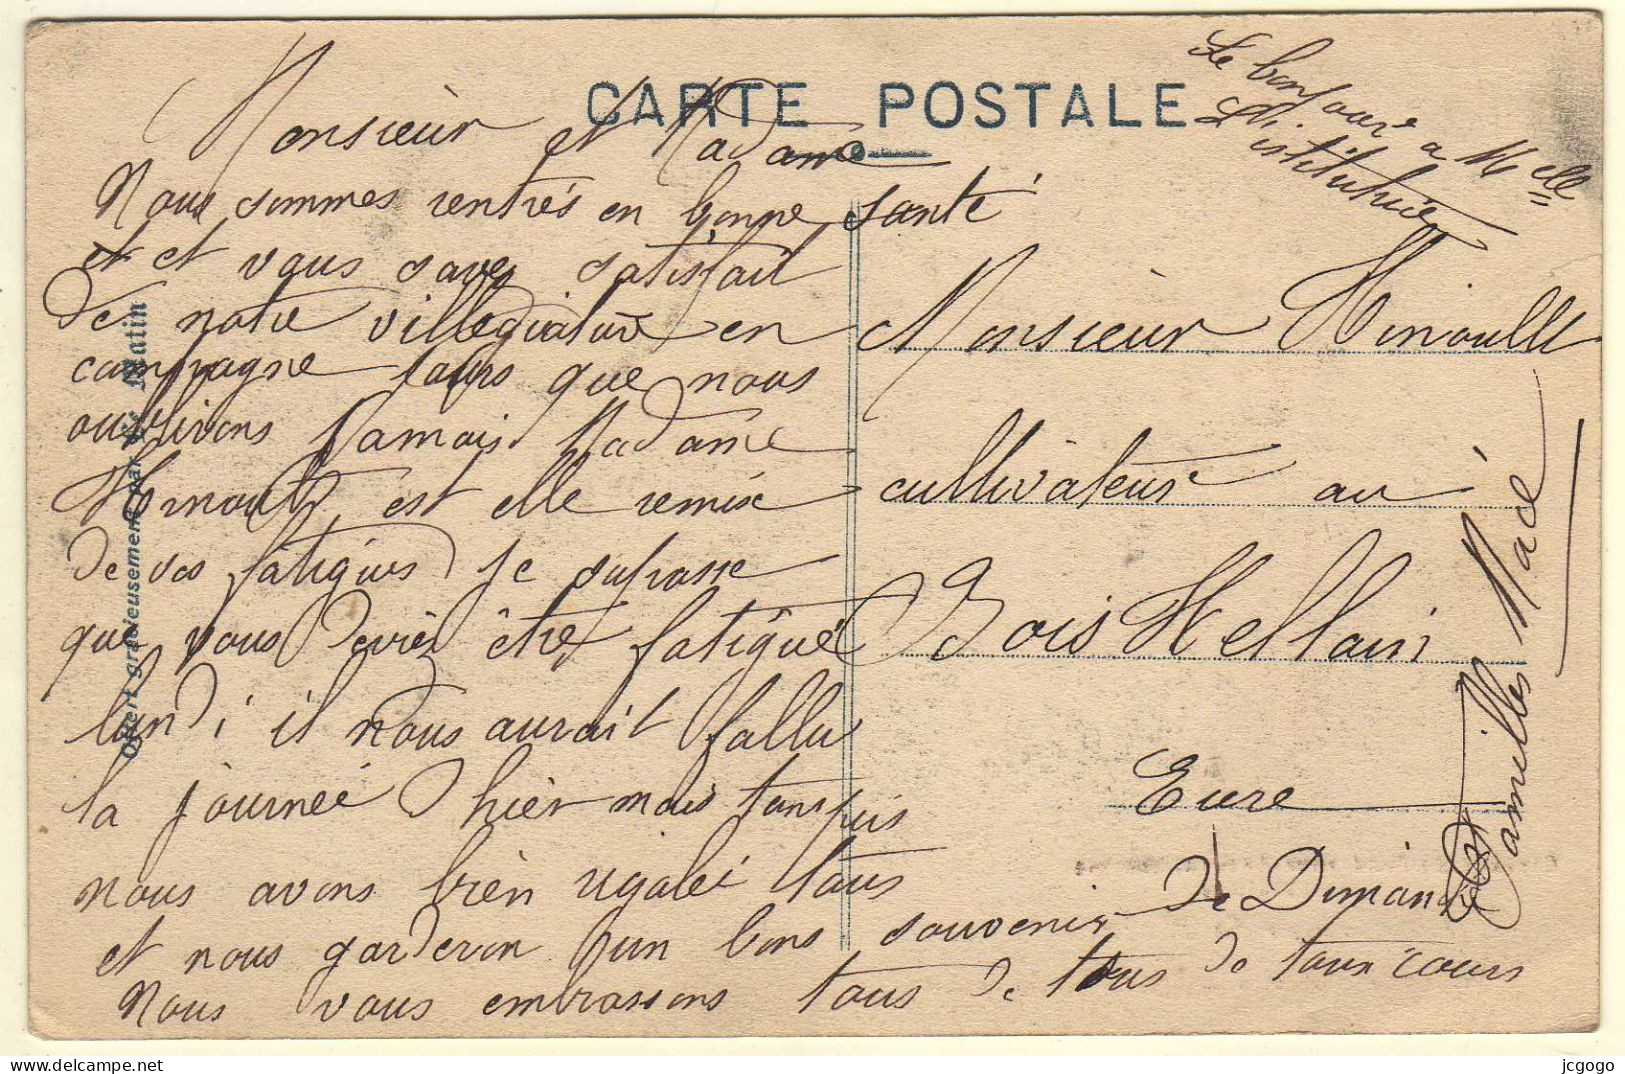 CARTE POSTALE
Le bonjour a Melle
L'istitutrice
Monsieur et Madame
Nous sommes rentrés en bonne santé
et et vous savez satisfait
de notre villegiature en
campagne jours que nous
oublirons jamais Madame
Hinoult est elle remix
de vos fatigues je suposse
que vous deviez être fatigué
lundi il nous aurait fallu
la journeé d'hièr mais tanspis
nous avons bien rigolei tous
et nous garderon d'un bons souvenir de Dimanche
Nous vous embrassons tous de tous do toux coeurs
Camilles Macé
Monsieur Hinoult
cultivateur au
Bois Hellain
Eure
Offert gracieusement par Le Matin
jcgogo